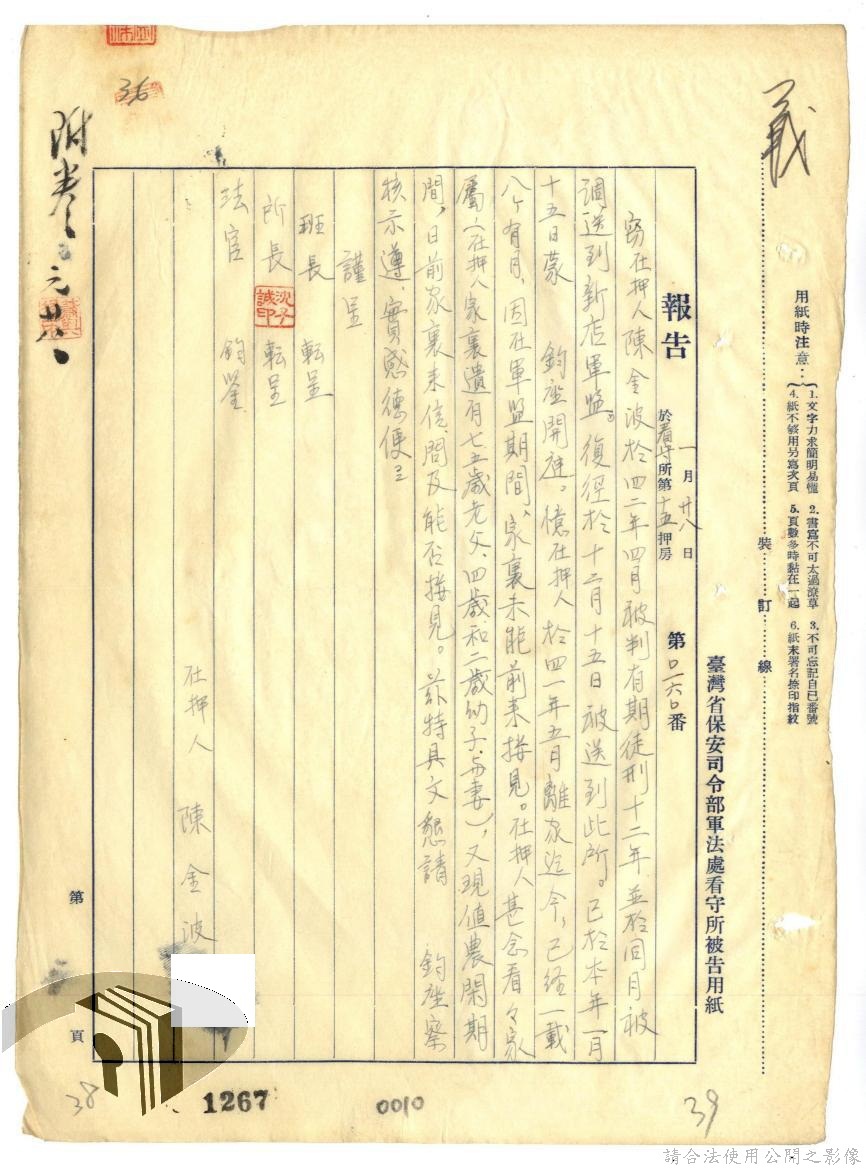 義
用紙時注意：
1. 文字力求簡明易懂 2. 書寫不可太過潦草 3. 不可忘記自己番號
4. 紙不够用另寫次頁 5. 頁數多時黏在一起 6. 紙末署名捺印指紋
裝訂線
臺灣省保安司令部軍法處看守所被告用紙
報告 一月廿八日 於看守所第十五押房 第〇一六〇番
竊在押人陳金波於四二年四月被判有期徒刑十二年並於同月被
調送到新店軍監。復徑於十二月十五日被送到此所。已於本年一月
十五日蒙 鈞座開庭。憶在押人於四一年五月離家迄今，已經一載
八ケ有月，因在軍監期間，家裏未能前來接見。在押人甚念看々家
屬（在押人家裏遺有七五歲老父、四歲和二歲幼子与妻），又現值農閑期
間，日前家裏來信，問及能否接見。茲特具文懇請 鈞座察
核示遵，實感德便
謹呈
班長 転呈
所長 転呈
法官 鈞鑒
在押人 陳金波
第 頁
附卷 元廿
36
38
1267
0010
39
請合法使用公開之影像